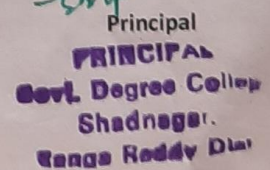 Principal
PRINCIPAL
Govt. Degree College
Shadnagar.
Ranga Reddy Dist